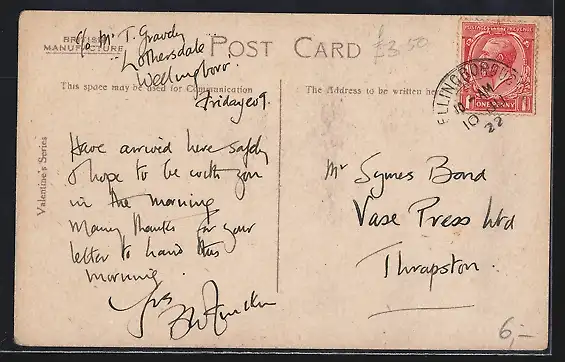 c/o Mr T. Gravely
"Lothersdale"
Wellingboro.
Friday eve 9.
BRITISH
MANUFACTURE
POST CARD
£3.50
This space may be used for Communication
The Address to be written here
Valentine's Series
Have arrived here safely
& hope to be with you
in the morning
Many thanks for your
letter to hand this
morning
Yrs
Mr Symes Bond
Vase Press Ltd
Thrapston.
POSTAGE REVENUE
ONE PENNY
ELLINGBOROUG
10 AM
10
22
6,-